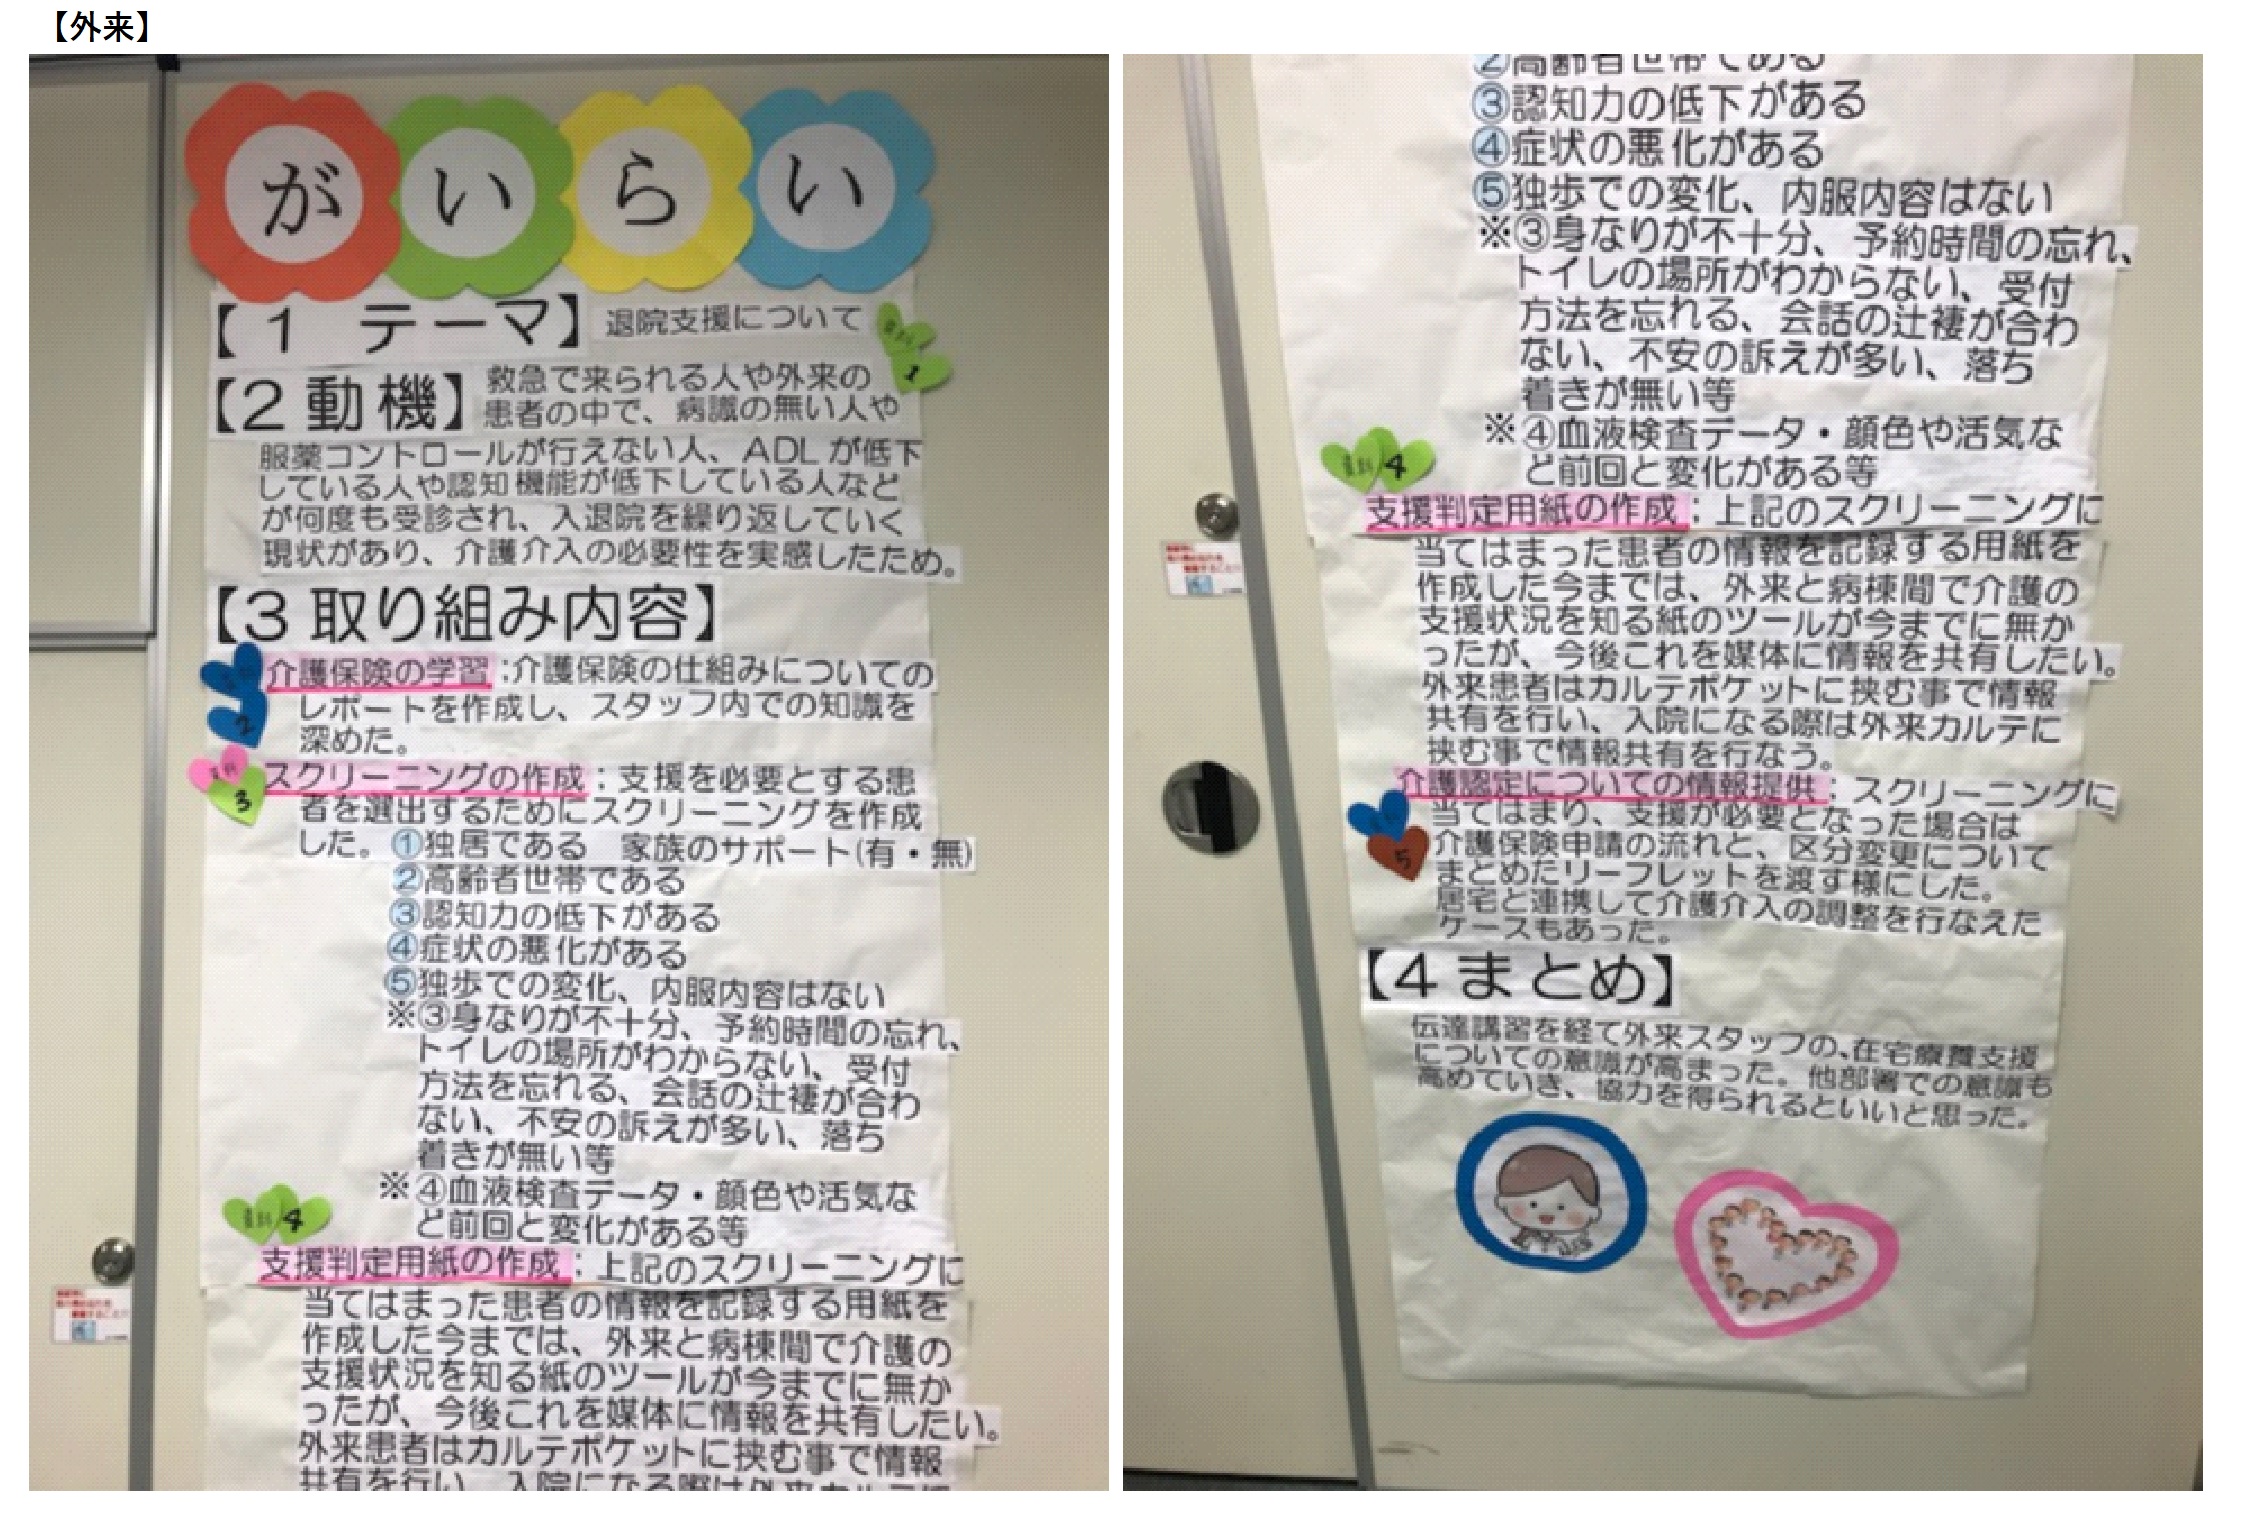 【外来】
がいらい
【1 テーマ】 退院支援について
1
【2 動機】 救急で来られる人や外来の
患者の中で、病識の無い人や
服薬コントロールが行えない人、ADLが低下
している人や認知機能が低下している人など
が何度も受診され、入退院を繰り返していく
現状があり、介護介入の必要性を実感したため。
【3 取り組み内容】
介護保険の学習:介護保険の仕組みについての
レポートを作成し、スタッフ内での知識を
2
深めた。
スクリーニングの作成:支援を必要とする患
3
者を選出するためにスクリーニングを作成
した。①独居である 家族のサポート(有・無)
②高齢者世帯である
③認知力の低下がある
④症状の悪化がある
⑤独歩での変化、内服内容はない
※③身なりが不十分、予約時間の忘れ、
トイレの場所がわからない、受付
方法を忘れる、会話の辻褄が合わ
ない、不安の訴えが多い、落ち
着きが無い等
※④血液検査データ・顔色や活気な
ど前回と変化がある等
4
支援判定用紙の作成:上記のスクリーニングに
当てはまった患者の情報を記録する用紙を
作成した今までは、外来と病棟間で介護の
支援状況を知る紙のツールが今までに無か
ったが、今後これを媒体に情報を共有したい。
外来患者はカルテポケットに挟む事で情報
共有を行い、入院になる際は外来カルテに
②高齢者世帯である
③認知力の低下がある
④症状の悪化がある
⑤独歩での変化、内服内容はない
※③身なりが不十分、予約時間の忘れ、
トイレの場所がわからない、受付
方法を忘れる、会話の辻褄が合わ
ない、不安の訴えが多い、落ち
着きが無い等
※④血液検査データ・顔色や活気な
ど前回と変化がある等
4
支援判定用紙の作成:上記のスクリーニングに
当てはまった患者の情報を記録する用紙を
作成した今までは、外来と病棟間で介護の
支援状況を知る紙のツールが今までに無か
ったが、今後これを媒体に情報を共有したい。
外来患者はカルテポケットに挟む事で情報
共有を行い、入院になる際は外来カルテに
挟む事で情報共有を行なう。
介護認定についての情報提供:スクリーニングに
当てはまり、支援が必要となった場合は
5
介護保険申請の流れと、区分変更について
まとめたリーフレットを渡す様にした。
居宅と連携して介護介入の調整を行なえた
ケースもあった。
【4 まとめ】
伝達講習を経て外来スタッフの、在宅療養支援
についての意識が高まった。他部署での意識も
高めていき、協力を得られるといいと思った。